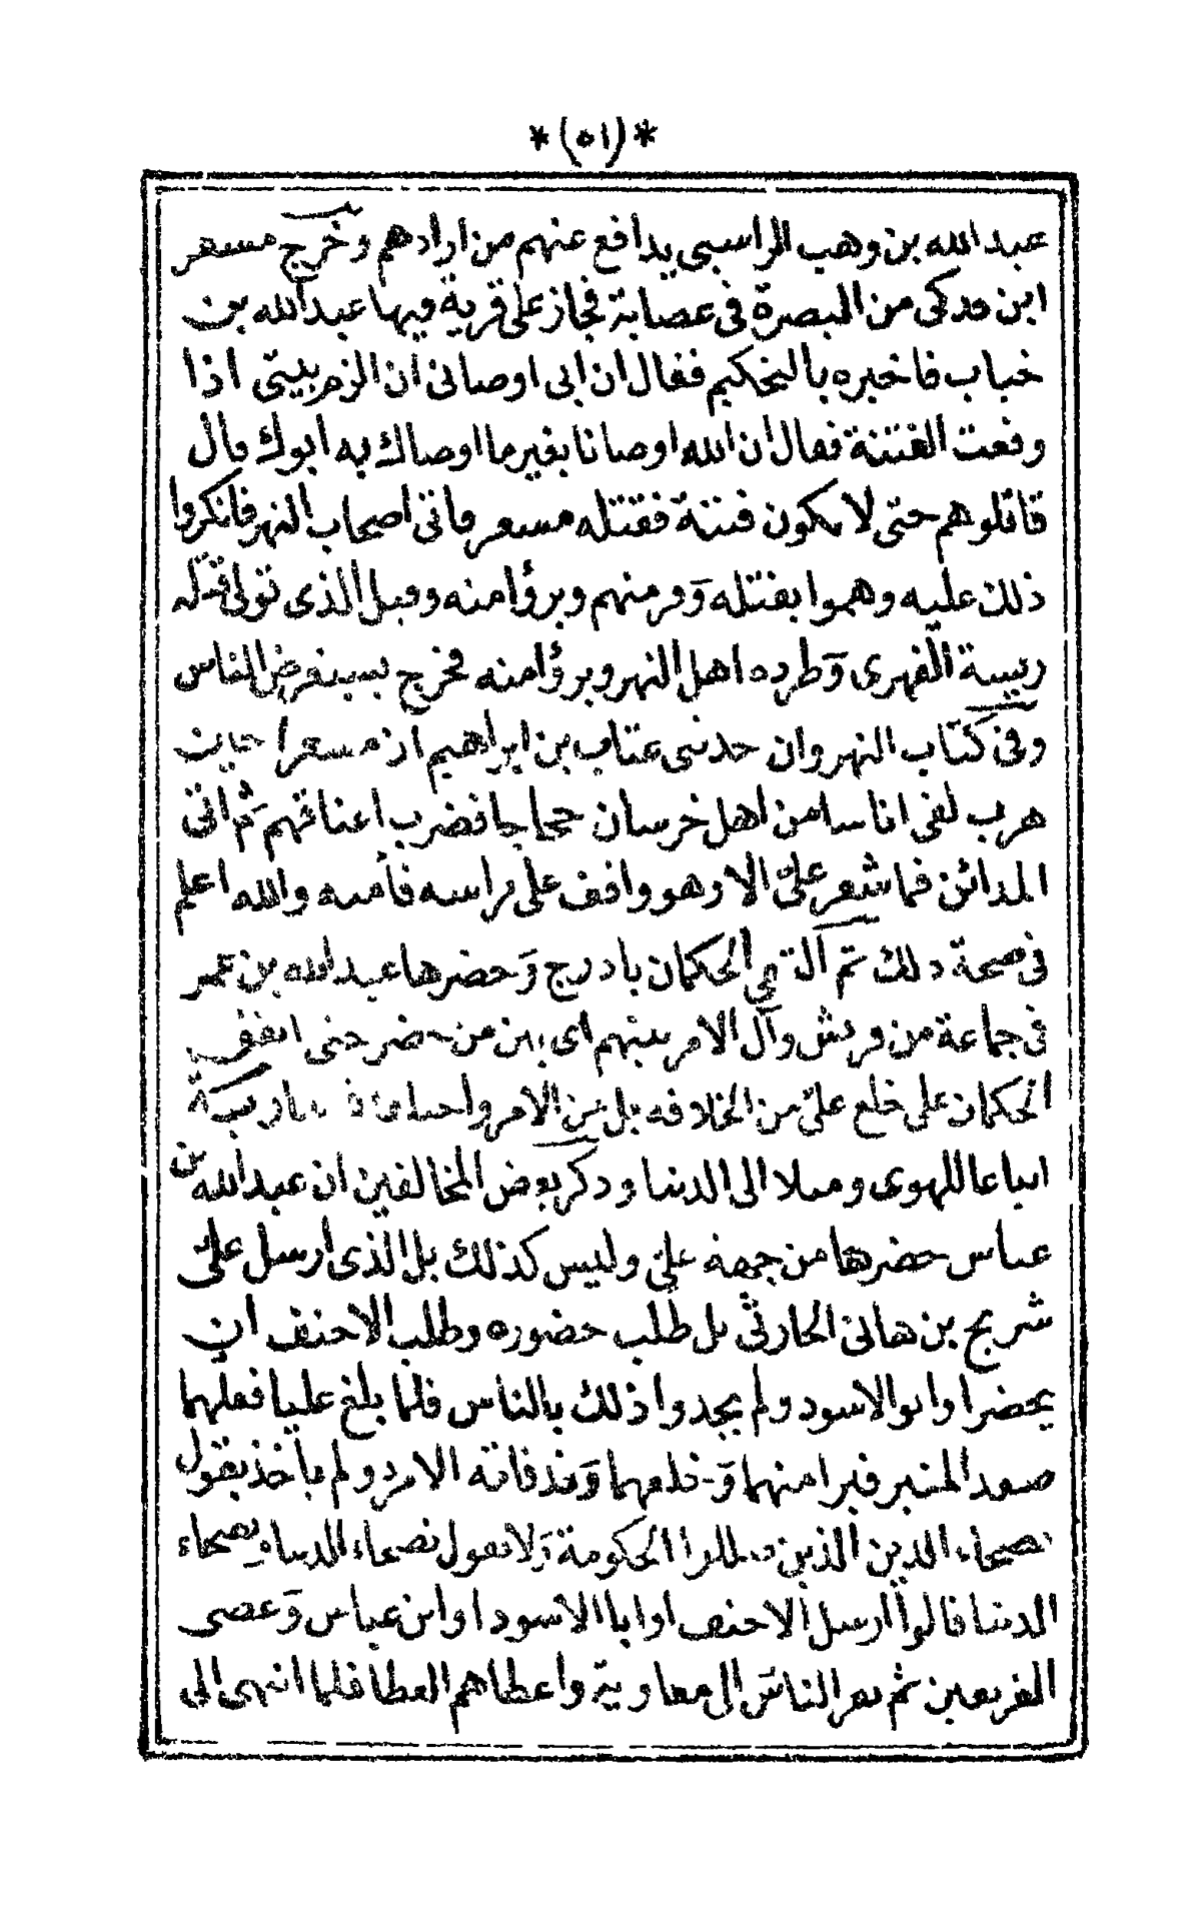 *(٥١)*
عبد الله بن وهب الراسبي يدافع عنهم من ارادهم وخرج مسعر
ابن فدكى من البصرة فى عصابة فجاز على قرية فيها عبد الله بن
خباب فاخبره بالتحكيم فقال ان ابى اوصانى ان الزم بيتى اذا
وقعت الفتنة فقال ان الله اوصانا بغير ما اوصاك به ابوك قال
قاتلوهم حتى لا تكون فتنة فقتله مسعر فاتى اصحاب النهر فانكروا
ذلك عليه وهموا بقتله وفر منهم وبرؤا منه وقيل الذى تولى قتله
ربيبة الفهرى وطرده اهل النهر وبرؤا منه فخرج يستعرض الناس
وفى كتاب النهروان حدثنى عتاب بن ابراهيم ان مسعرا حين
هرب لقى اناسا من اهل خرسان حجاجا فضرب اعناقهم ثم اتى
المدائن فما شعر علىّ الا وهو واقف على راسه فأمنه والله اعلم
فى صحة ذلك ثم التقى الحكمان باذرح وحضرها عبد الله بن عمر
فى جماعة من قريش وآل الامر بينهم اى بين من حضر حتى اتفق
الحكمان على خلع علىّ من الخلافة بل من الامر واحدا
اتباعا للهوى وميلا الى الدنيا وذكر بعض المخالفين ان عبد الله بن
عباس حضرها من جهة علىّ وليس كذلك بل الذى ارسل علىّ
شريح بن هانى الحارثى بل طلب حضوره وطلب الاحنف ان
يحضر او ابو الاسود ولم يجدوا ذلك بالناس فلما بلغ عليا فعلهما
صعد المنبر فبرا منهما وخلعهما وقد فاته الامر ولم يأخذ بقول
نصحاء الدين الذين الحكومة ولا بقول نصحاء الدنيا ونصحاء
الدنيا قالوا ارسل الاحنف او ابا الاسود او ابن عباس وعصى
الفريقين ثم نفر الناس الى معاوية واعطاهم العطا فلما انتهى الى